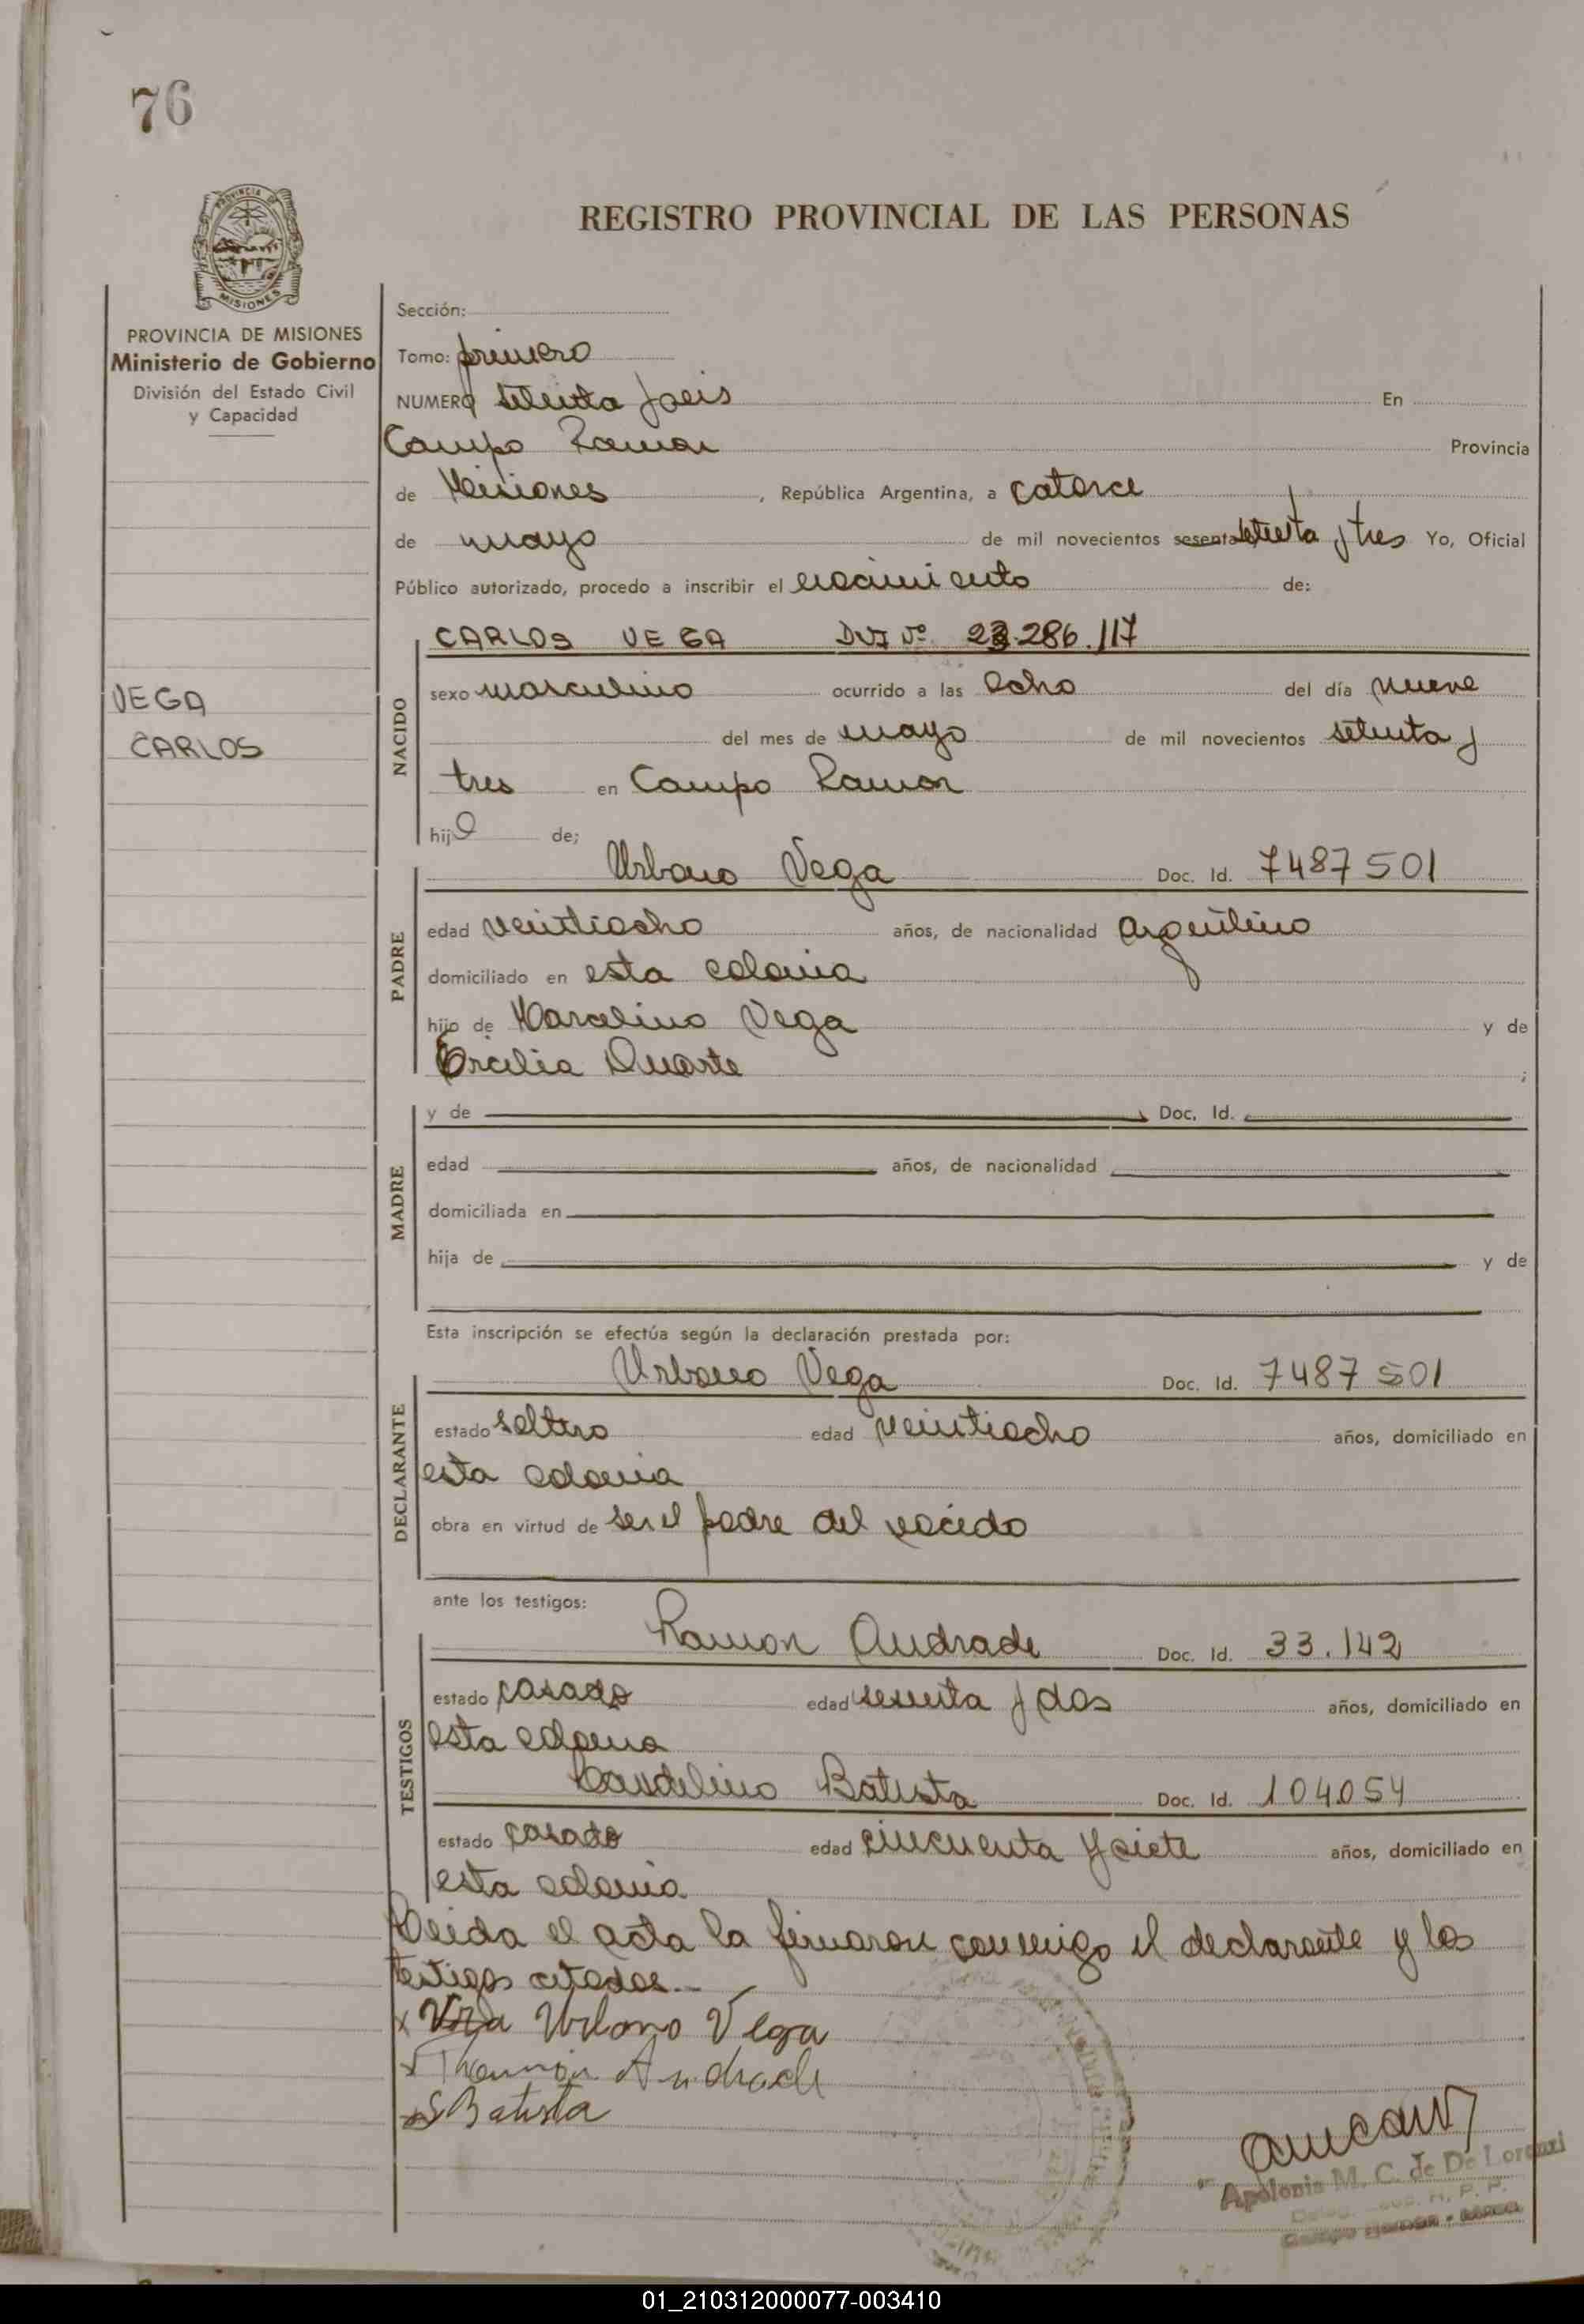 76
PROVINCIA
MISIONES
REGISTRO PROVINCIAL DE LAS PERSONAS
PROVINCIA DE MISIONES
Ministerio de Gobierno
División del Estado Civil
y Capacidad
VEGA
CARLOS
Sección:
Tomo: primero
NUMERO setenta y seis En
Campo Ramon Provincia
de Misiones, República Argentina, a catorce
de mayo de mil novecientos sesenta setenta y tres Yo, Oficial
Público autorizado, procedo a inscribir el nacimiento de:
CARLOS VEGA Nº 23.286.117
NACIDO
sexo masculino ocurrido a las ocho del día nueve
del mes de mayo de mil novecientos setenta y
tres en Campo Ramon
hijo de;
PADRE
Urbano Vega Doc. Id. 7487501
edad veintiocho años, de nacionalidad argentino
domiciliado en esta colonia
hijo de Marcelino Vega y de
Ercilia Duarte ;
MADRE
y de Doc. Id.
edad años, de nacionalidad
domiciliada en
hija de y de
Esta inscripción se efectúa según la declaración prestada por:
DECLARANTE
Urbano Vega Doc. Id. 7487501
estado soltero edad veintiocho años, domiciliado en
esta colonia
obra en virtud de ser el padre del nacido
ante los testigos:
TESTIGOS
Ramon Andrade Doc. Id. 33.142
estado casado edad sesenta y dos años, domiciliado en
esta colonia
Batista Doc. Id. 104054
estado casado edad cincuenta y siete años, domiciliado en
esta colonia
Leida el acta la firmaron conmigo el declarante y los
testigos citados.-
x Urbano Vega
x Andrade
x S Batista
Apolonia M. C. de De Lorenzi
Campo Ramon
01_210312000077-003410